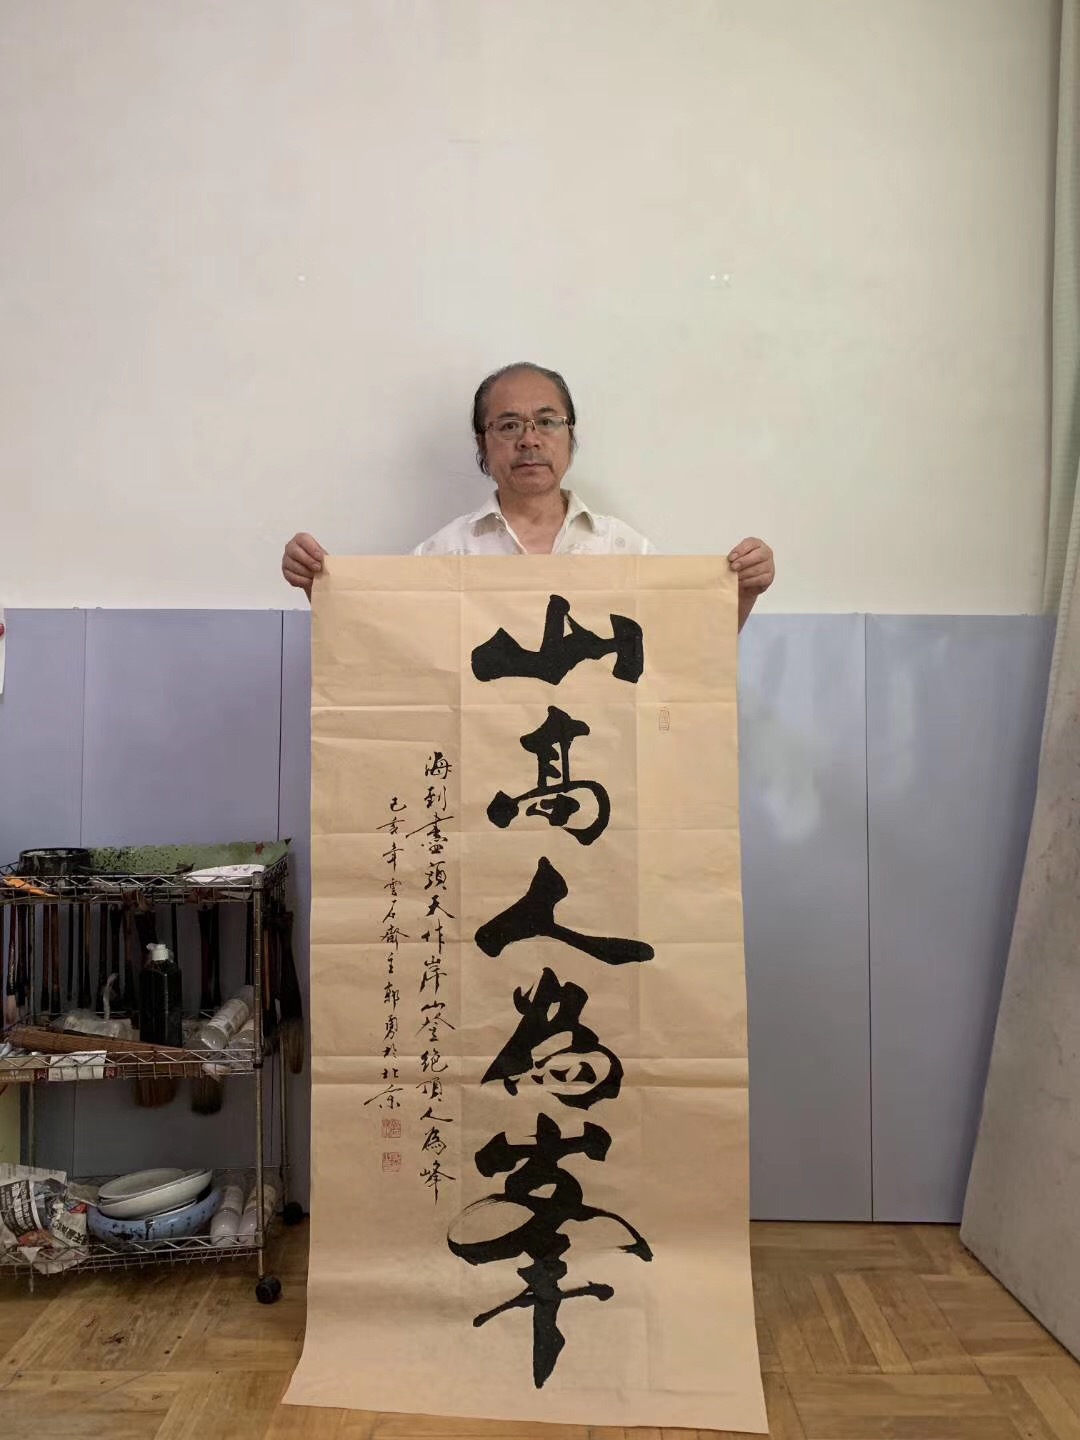 山高人為峯
海到盡頭天作岸山登絕頂人為峰
己亥年雲石齋主郭勇於北京